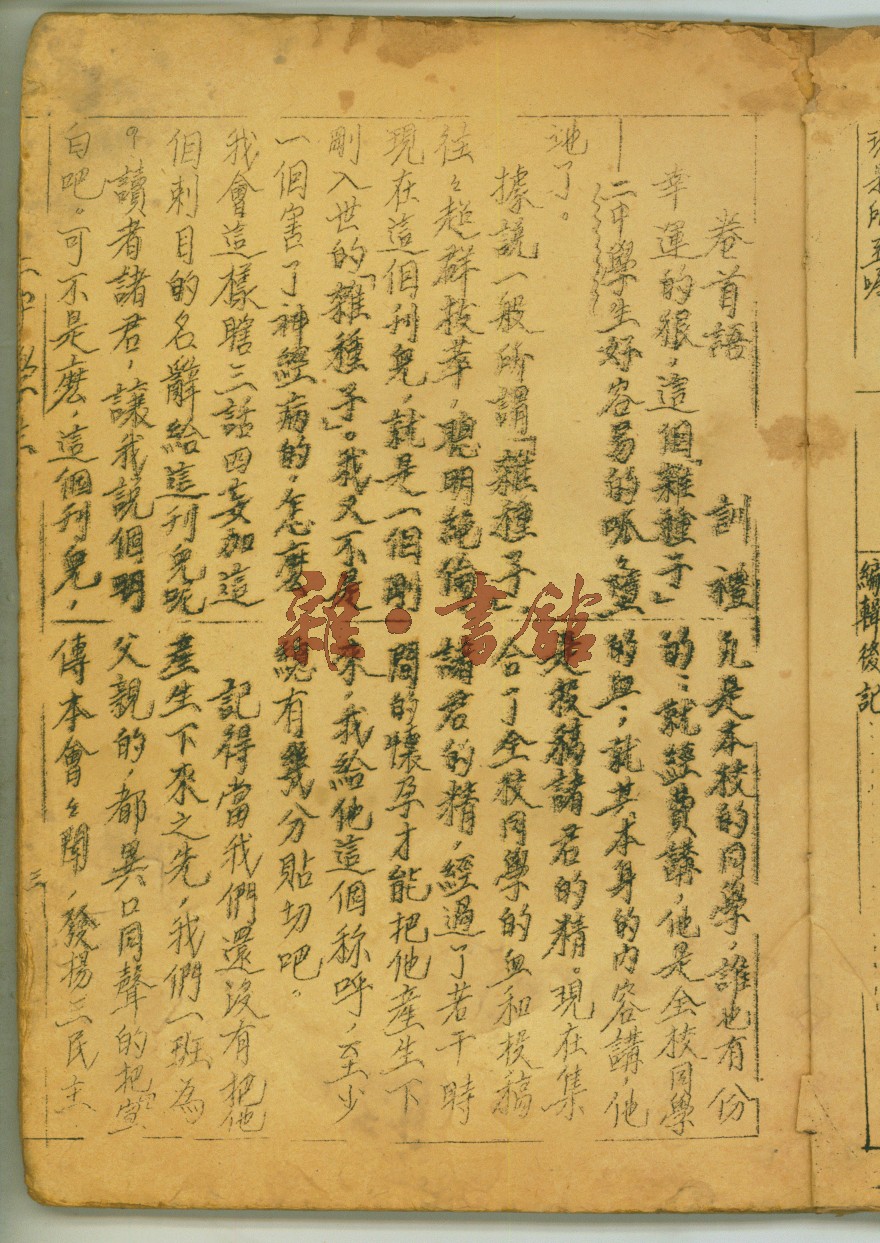 卷首語
訓禮
幸運的狠，這個「雜種子」
二中學生好容易的呱々墮
地了。
據說一般所謂「雜種子」
往々超群拔萃，聰明絕倫
現在這個刊兒，就是一個剛
剛入世的「雜種子」。我又不是
一個害了神經病的，怎麼
我會這樣瞎三話四妄加這
個刺目的名辭給這刊兒呢
？讀者諸君，讓我說個明
白吧。可不是麽，這個刊兒，
凡是本校的同學，誰也有份
的；就經費講，他是全校同學
的血；就其本身的內容講，他
是投稿諸君的精。現在集
合了全校同學的血和投稿
諸君的精，經過了若干時
間的懷孕才能把他產生下
來，我給他這個称呼，至少
總有幾分貼切吧。
記得當我們還没有把他
產生下來之先，我們一班為
父親的，都異口同聲的把宣
傳本會々聞，發揚三民主
三
編輯後記
雜·書館